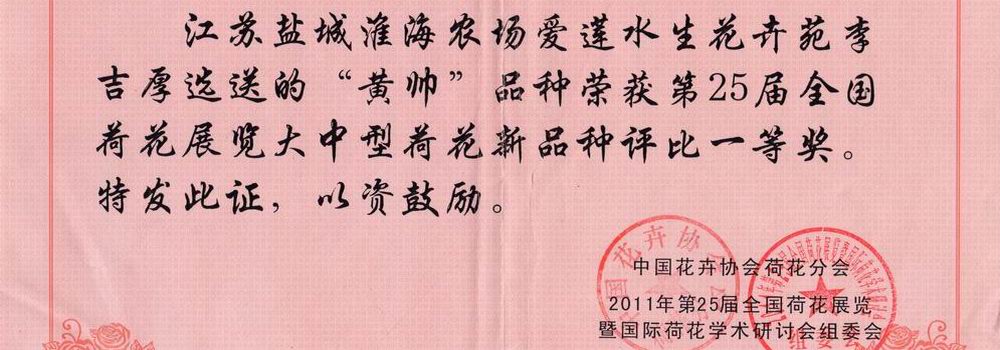 江苏盐城淮海农场爱莲水生花卉苑李
吉厚选送的“黄帅”品种荣获第25届全国
荷花展览大中型荷花新品种评比一等奖。
特发此证，以资鼓励。
中国花卉协会荷花分会
2011年第25届全国荷花展览
暨国际荷花学术研讨会组委会